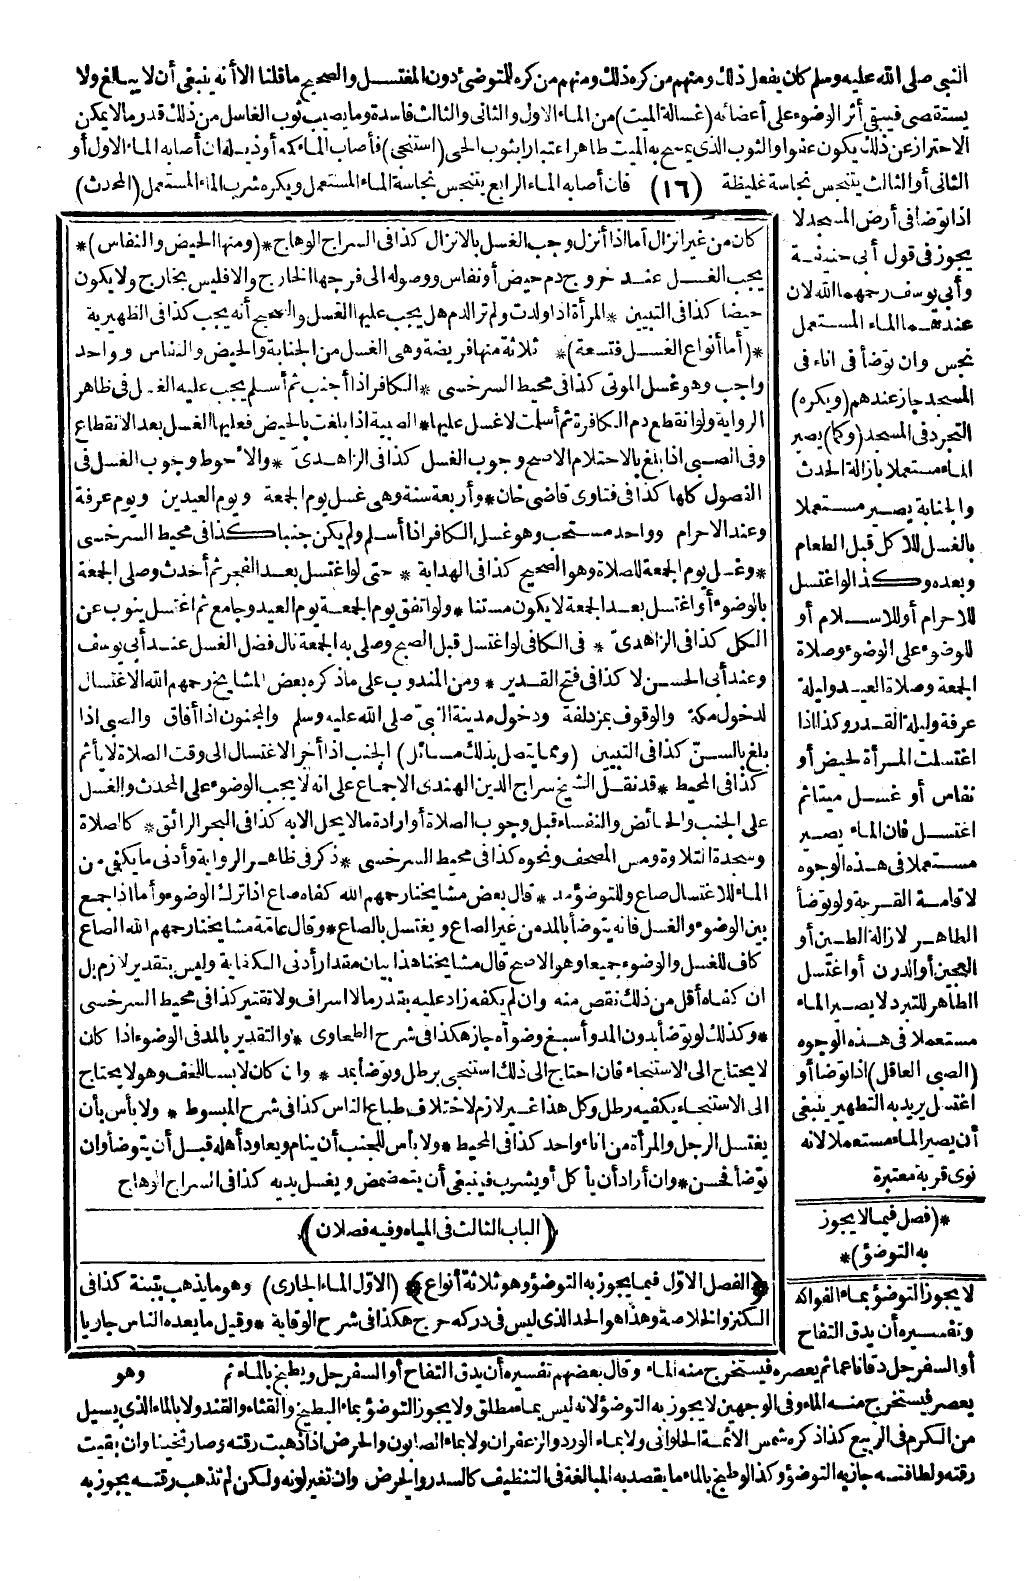 النبى صلى الله عليه وسلم كان يفعل ذلك ومنهم من كره ذلك ومنهم من كره للمتوضئ دون المغتسل والصحيح ما قلنا الا أنه ينبغى أن لا يبالغ ولا
يستقصى فيبقى أثر الوضوء على أعضائه (غسالة الميت) من الماء الاول والثانى والثالث فاسدة وما يصيب ثوب الغاسل من ذلك قدر ما لا يمكن
الاحتراز عن ذلك يكون عفوا والثوب الذى يمسح به الميت طاهر اعتبارا بثوب الحى (استنجى) فأصاب الماء كمه أو ذيله ان أصابه الماء الاول أو
الثانى أو الثالث يتنجس نجاسة غليظة (١٦) فان أصابه الماء الرابع يتنجس نجاسة الماء المستعمل ويكره شرب الماء المستعمل (المحدث)
اذا توضأ فى أرض المسجد لا
يجوز فى قول أبى حنيفة
وأبى يوسف رحمهما الله لان
عندهما الماء المستعمل
نجس وان توضأ فى اناء فى
المسجد جاز عندهم (ويكره)
التجرد فى المسجد (وكما) يصير
الماء مستعملا بازالة الحدث
والجنابة يصير مستعملا
بالغسل للاكل قبل الطعام
وبعده وكذا لو اغتسل
للاحرام أو للاسلام أو
للوضوء على الوضوء وصلاة
الجمعة وصلاة العيد وليلة
عرفة وليلة القدر وكذا اذا
اغتسلت المرأة لحيض أو
نفاس أو غسل ميتا ثم
اغتسل فان الماء يصير
مستعملا فى هذه الوجوه
لاقامة القربة ولو توضأ
الطاهر لازالة الطين أو
العجين أو الدرن أو اغتسل
الطاهر للتبرد لا يصير الماء
مستعملا فى هذه الوجوه
(الصبى العاقل) اذا توضأ أو
اغتسل يريد به التطهير ينبغى
أن يصير الماء مستعملا لانه
نوى قربة معتبرة
*(فصل فيما لا يجوز
به التوضؤ)*
لا يجوز التوضؤ بماء الفواكه
وتفسيره أن يدق التفاح
كان من غير انزال أما اذا أنزل وجب الغسل بالانزال كذا فى السراج الوهاج *(ومنها الحيض والنفاس)*
يجب الغسل عند خروج دم حيض أو نفاس ووصوله الى فرجها الخارج والا فليس بخارج ولا يكون
حيضا كذا فى التبيين * المرأة اذا ولدت ولم تر الدم هل يجب عليها الغسل والصحيح أنه يجب كذا فى الظهيرية
*(أما أنواع الغسل فتسعة)* ثلاثة منها فريضة وهى الغسل من الجنابة والحيض والنفاس وواحد
واجب وهو غسل الموتى كذا فى محيط السرخسى * الكافر اذا أجنب ثم أسلم يجب عليه الغسل فى ظاهر
الرواية ولو انقطع دم الكافرة ثم أسلمت لا غسل عليها * الصبية اذا بلغت بالحيض فعليها الغسل بعد الانقطاع
وفى الصبى اذا بلغ بالاحتلام الاصح وجوب الغسل كذا فى الزاهدىّ * والاحوط وجوب الغسل فى
الفصول كلها كذا فى فتاوى قاضى خان * وأربعة سنة وهى غسل يوم الجمعة ويوم العيدين ويوم عرفة
وعند الاحرام وواحد مستحب وهو غسل الكافر اذا أسلم ولم يكن جنبا كذا فى محيط السرخسى
* وغسل يوم الجمعة للصلاة وهو الصحيح كذا فى الهداية * حتى لو اغتسل بعد الفجر ثم أحدث وصلى الجمعة
بالوضوء أو اغتسل بعد الجمعة لا يكون مستنا * ولو اتفق يوم الجمعة يوم العيد وجامع ثم اغتسل ينوب عن
الكل كذا فى الزاهدىّ * فى الكافى لو اغتسل قبل الصبح وصلى به الجمعة نال فضل الغسل عند أبى يوسف
وعند أبى الحسن لا كذا فى فتح القدير * ومن المندوب على ما ذكره بعض المشايخ رحمهم الله الاغتسال
لدخول مكة والوقوف بمزدلفة ودخول مدينة النبىّ صلى الله عليه وسلم والمجنون اذا أفاق والصبى اذا
بلغ بالسنّ كذا فى التبيين (ومما يتصل بذلك مسائل) الجنب اذا أخر الاغتسال الى وقت الصلاة لا يأثم
كذا فى المحيط * قد نقل الشيخ سراج الدين الهندى الاجماع على انه لا يجب الوضوء على المحدث والغسل
على الجنب والحائض والنفساء قبل وجوب الصلاة أو ارادة ما لا يحل الا به كذا فى البحر الرائق * كالصلاة
وسجدة التلاوة ومس المصحف ونحوه كذا فى محيط السرخسى * ذكر فى ظاهر الرواية وأدنى ما يكفى من
الماء للاغتسال صاع وللتوضؤ مد * قال بعض مشايخنا رحمهم الله كفاه صاع اذا ترك الوضوء وأما اذا جمع
بين الوضوء والغسل فانه يتوضأ بالمد من غير الصاع ويغتسل بالصاع * وقال عامة مشايخنا رحمهم الله الصاع
كاف للغسل والوضوء جميعا وهو الاصح قال مشايخنا هذا بيان مقدار أدنى الكفاية وليس بتقدير لازم بل
ان كفاه أقل من ذلك نقص منه وان لم يكفه زاد عليه بقدر ما لا اسراف ولا تقتير كذا فى محيط السرخسى
* وكذلك لو توضأ بدون المد وأسبغ وضوأه جاز هكذا فى شرح الطحاوى * والتقدير بالمد فى الوضوء اذا كان
لا يحتاج الى الاستنجاء فان احتاج الى ذلك استنجى برطل وتوضأ بمد * وان كان لابسا للخف وهو لا يحتاج
الى الاستنجاء يكفيه رطل وكل هذا غير لازم لاختلاف طباع الناس كذا فى شرح المبسوط * ولا بأس بأن
يغتسل الرجل والمرأة من اناء واحد كذا فى المحيط * ولا بأس للجنب أن ينام ويعاود أهله قبل أن يتوضأ وان
توضأ فحسن * وان أراد أن يأكل أو يشرب فينبغى أن يتمضمض ويغسل يديه كذا فى السراج الوهاج
(الباب الثالث فى المياه وفيه فصلان)
(الفصل الاوّل فيما يجوز به التوضؤ وهو ثلاثة أنواع) (الاوّل الماء الجارى) وهو ما يذهب بتبنة كذا فى
الكنز والخلاصة وهذا هو الحد الذى ليس فى دركه حرج هكذا فى شرح الوقاية * وقيل ما يعده الناس جاريا
وهو
أو السفرجل دقا ناعما ثم يعصره فيستخرج منه الماء وقال بعضهم تفسيره أن يدق التفاح أو السفرجل ويطبخ بالماء ثم
يعصر فيستخرج منه الماء وفى الوجهين لا يجوز به التوضؤ لانه ليس بماء مطلق ولا يجوز التوضؤ بماء البطيخ والقثاء والقند ولا بالماء الذى يسيل
من الكرم فى الربيع كذا ذكره شمس الائمة الحلوانى ولا بماء الورد والزعفران ولا بماء الصابون والحرض اذا ذهبت رقته وصار ثخينا وان بقيت
رقته ولطافته جاز به التوضؤ وكذا لو طبخ بالماء ما يقصد به المبالغة فى التنظيف كالسدر والحرض وان تغير لونه ولكن لم تذهب رقته يجوز به